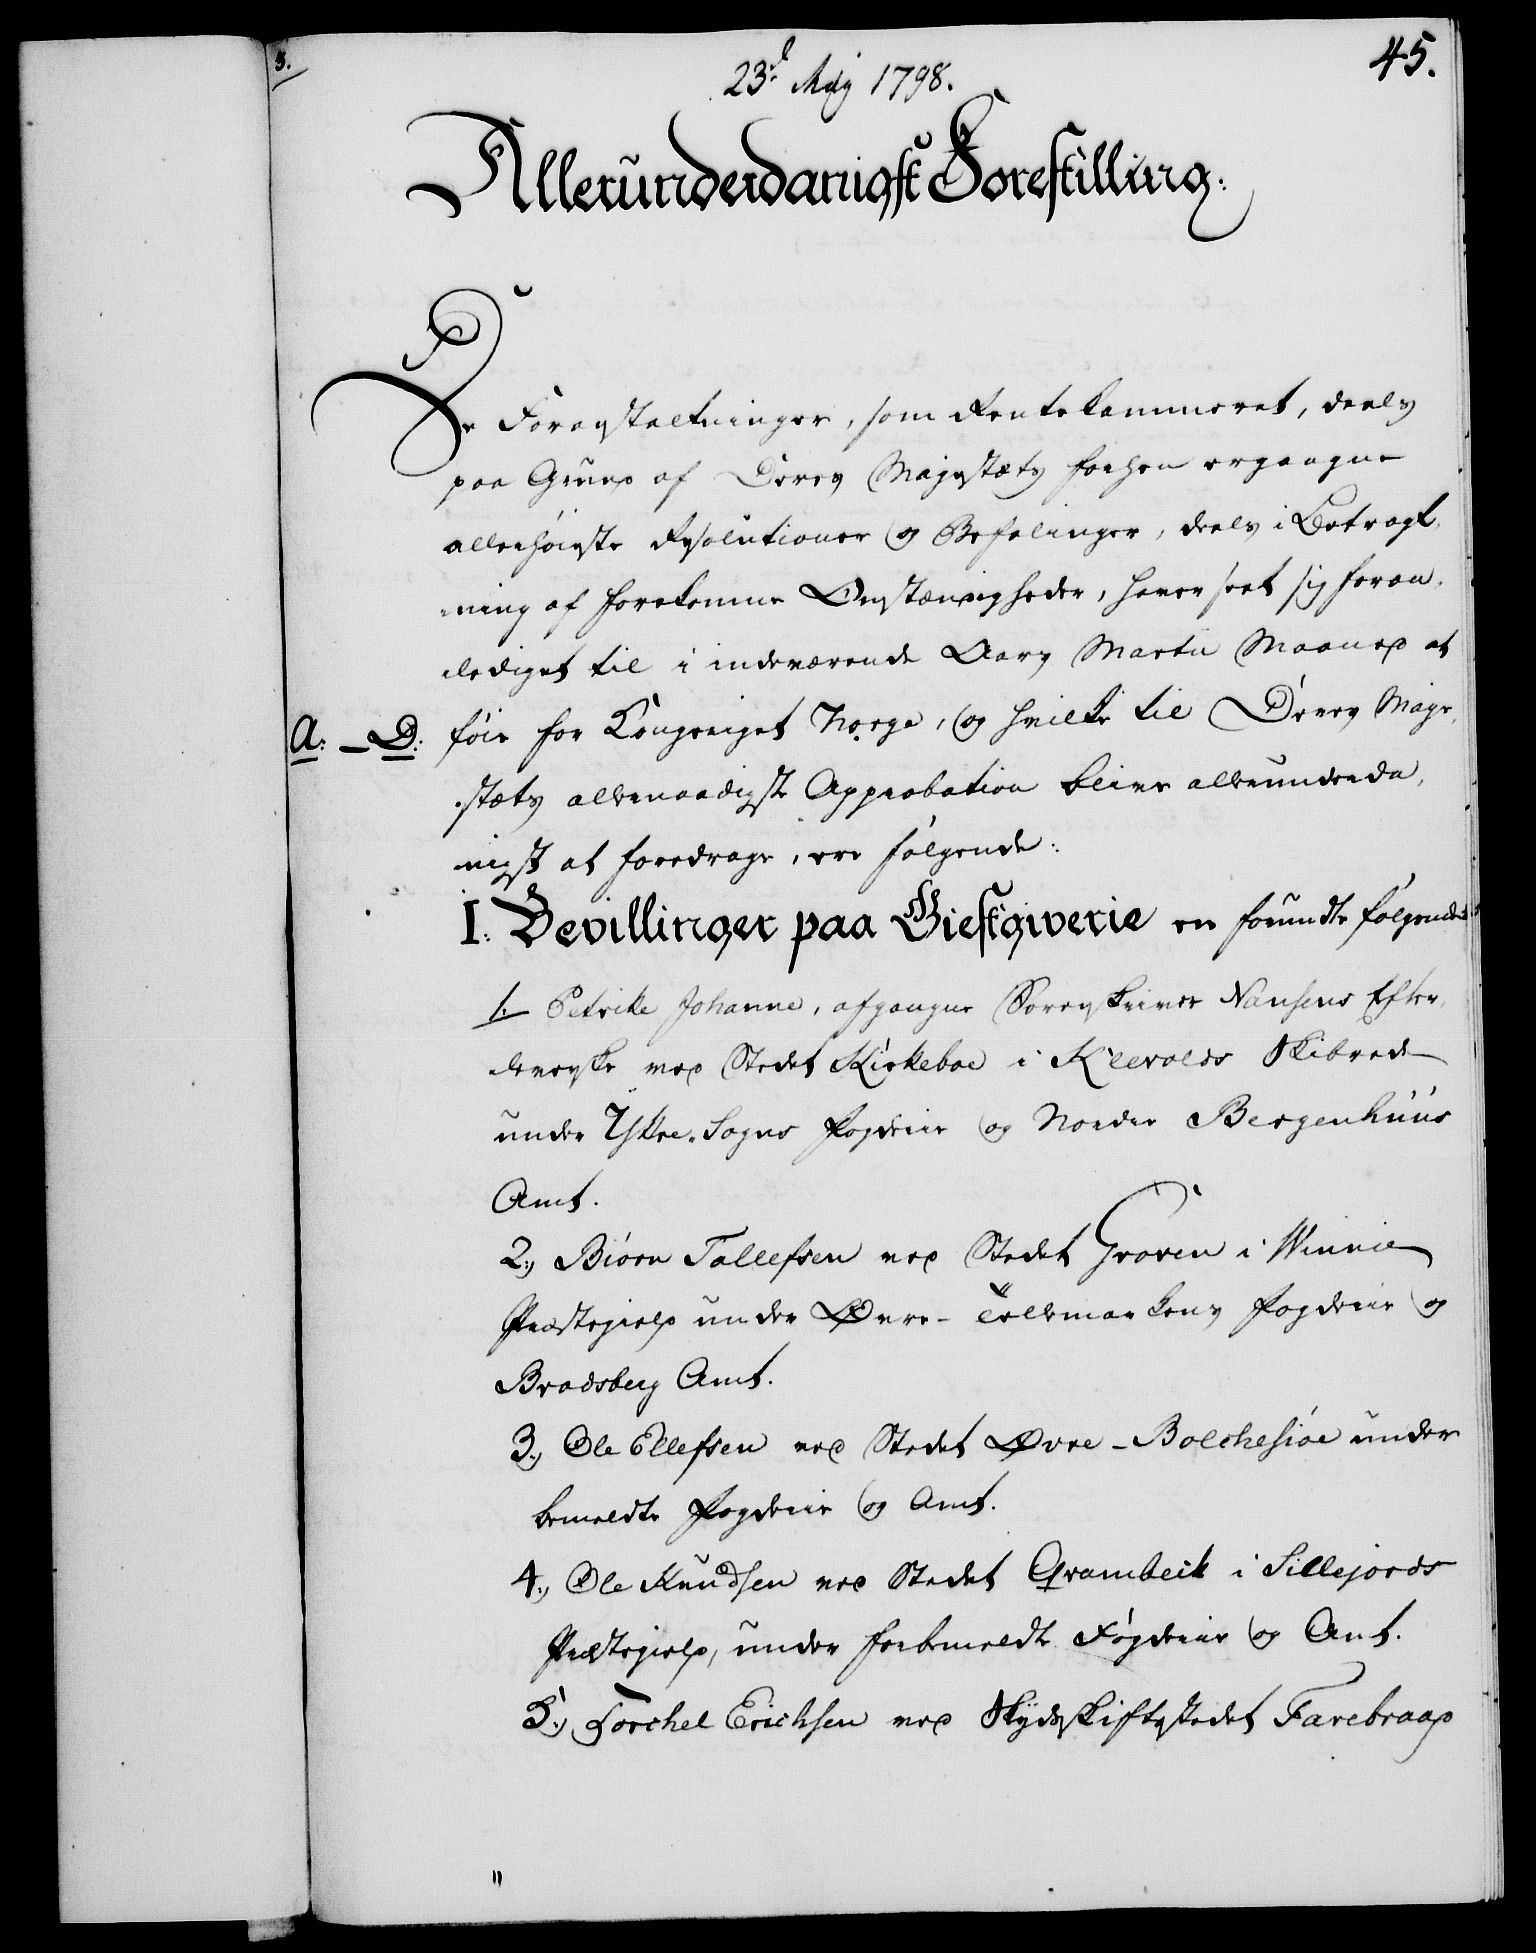 3.
45.
23d. Maÿ 1798.
Allerunderdanigst Forestilling:
De Foranstaltninger, som Rentekammeret, deels
paa Grund af Deres Majestæts forhen ergangne
allerhøieste Resolutioner og Befalinger, deels i Betragt,
ning af forekomne Omstændigheder, haver seet sig foran,
lediget til i indeværende Aars Martii Maaned at
A: - D: føie for Kongeriget Norge, og hvilke til Deres Maje,
stæts allernaadigste Approbation blive allerunderda,
nigst at foredrage, ere følgende:
I: Bevillinger paa Giestgiverie er forundte følgende:
1. Petrike Johanne, afgangne Sorenskriver Nansens Efter,
leverske ved Stedet Kirkeboe i Klevolds Skibrede
under Ÿttre-Sogns Fogderie og Nordre Bergenhuus
Amt.
2.) Biørn Tallefsen ved Stedet Graven i Winnie
Præstegield under Øvre-Tellemarkens Fogderie og
Bradsberg Amt.
3.) Ole Ellefsen ved Stedet Øvre-Bolchesiøe under
bemeldte Fogderie og Amt.
4.) Ole Knudsen ved Stedet Qrambeik i Sillejords
Præstegield, under forbemeldte Fogderie og Amt.
5.) Torchel Erichsen ved Skÿdsskiftestedet Farebraad
"